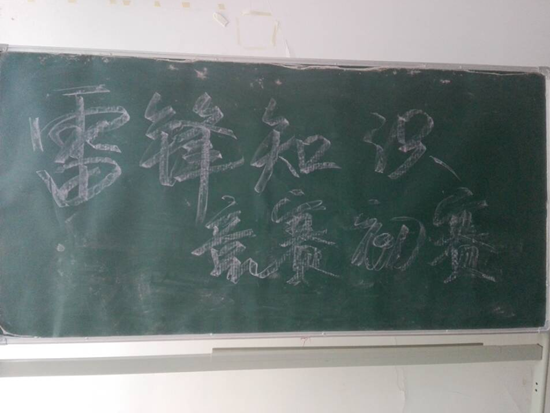 雷锋知识
竞赛初赛